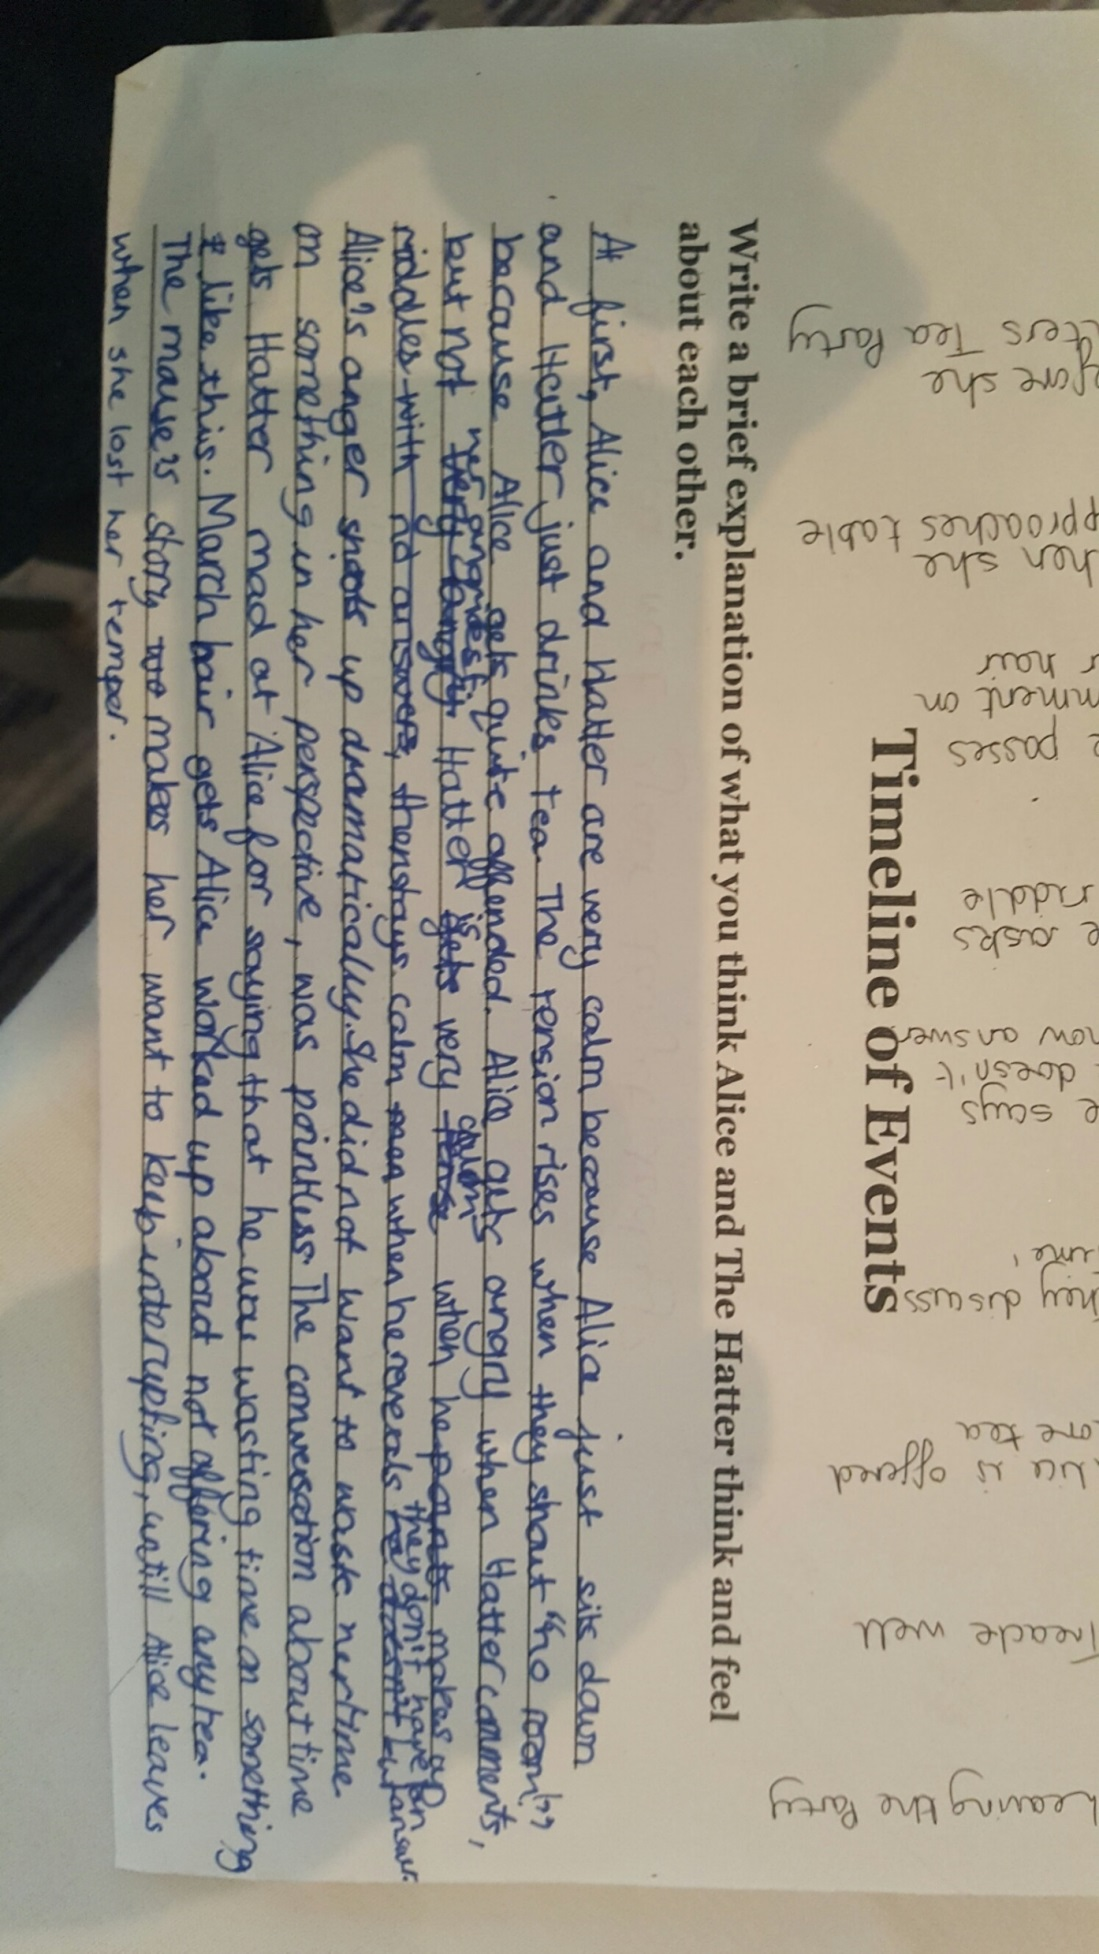 tters Tea Party
efore she
pproaches table
hen she
r hair
mment on
e passes
riddle
e asks
now answer
doesn't
e says
time'
hey discuss
ore tea
lice is offered
Treacle well
Leaving the Party
Timeline of Events
Write a brief explanation of what you think Alice and The Hatter think and feel
about each other.
At first, Alice and Hatter are very calm because Alice just sits down
and Hatter just drinks tea. The tension rises when they shout "no room!"
because Alice gets quite offended. Alice gets angry when Hatter comments,
but not very angry her angriest. Hatter gets is very tense calm when he makes up
riddles with no answers, then stays calm when he reveals they don't have an answer.
Alice's anger shoots up dramatically. She did not want to waste her time
on something in her perspective, was pointless. The conversation about time
gets Hatter mad at Alice for saying that he was wasting time on something
like this. March hair gets Alice worked up about not offering any tea.
The mouse's story makes her want to keep interupting, untill Alice leaves
when she lost her temper.